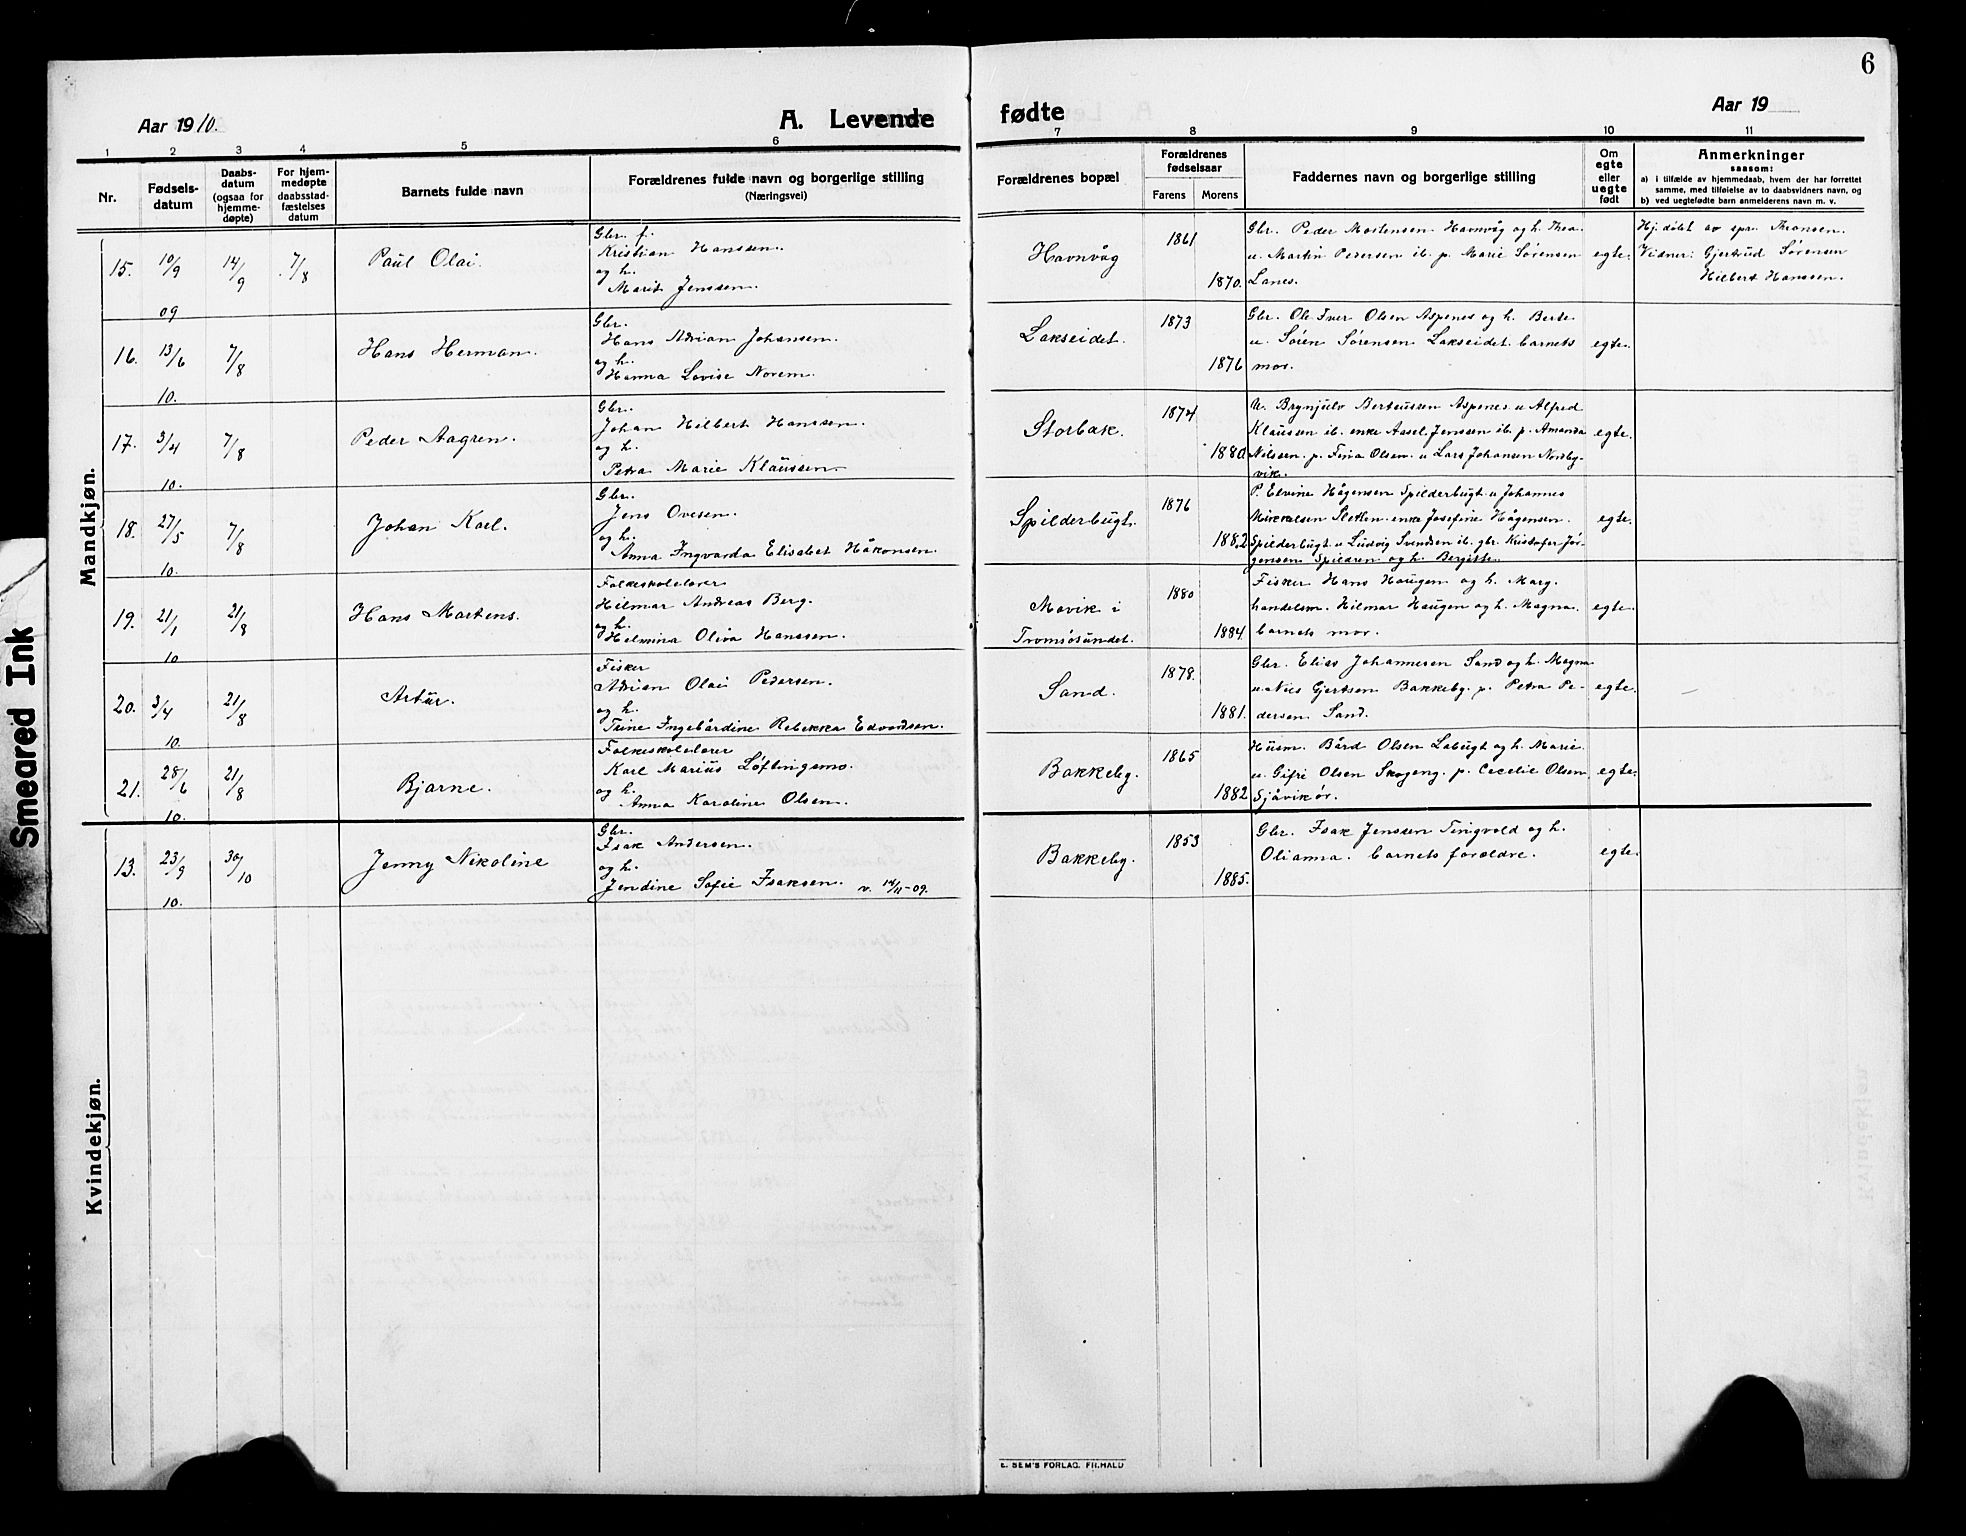 6
Aar 1910.
A. Levende
fødte
Aar 19
1 2 3 4 5 6 7 8 9 10 11
Nr.
Fødsels-
datum
Daabs-
datum
(ogsaa for
hjemme-
døpte)
For hjem-
medøpte
daabsstad-
fæstelses
datum
Barnets fulde navn
Forældrenes fulde navn og borgerlige stilling
(Næringsvei)
Forældrenes bopæl
Forældrenes
fødselsaar
Farens Morens
Faddernes navn og borgerlige stilling
Om
egte
eller
uegte
født
Anmerkninger
saasom:
a) i tilfælde av hjemmedaab, hvem der har forrettet
samme, med tilføielse av to daabsvidners navn, og
b) ved uegtefødte barn anmelderens navn m. v.
Mandkjøn.
15. 10/9 09 14/9 7/8 Paul Olai.
Gbr. f.
Kristian Hanssen.
og h.
Marit Jenssen.
Havnvåg
1861
1870.
Gbr. Peder Mortensen Havnvåg og h. Thea
u. Martin Pedersen ib. p. Marie Sørensen
Lanes.
egte.
Hj. døbt av spr. Thronsen.
Vidner: Gjertrud Sørensen
Hilbert Hanssen.
16. 13/6 10. 7/8 Hans Herman.
Gbr.
Hans Adrian Johansen.
og h.
Hanna Lovise Norem.
Lakseidet.
1873
1876
Gbr. Ole Iver Olsen Aspenes og h. Berte
u. Søren Sørensen Lakseidet. barnets
mor.
egte.
17. 3/4 10. 7/8 Peder Aagren.
Gbr.
Johan Hilbert Hanssen.
og h.
Petra Marie Klaussen
Storbak.
1874
1880.
U. Brynjulv Berteussen Aspenes u Alfred
Klaussen ib. enke Assel Jenssen ib. p. Amanda
Nilssen. p. Fina Olsen. u Lars Johansen Nordby-
vik.
egte.
18. 27/5 10. 7/8 Johan Karl.
Gbr.
Jens Ovesen.
og h.
Anna Ingvarda Elisabet Håkonsen.
Spilderbugt.
1876
1882
P. Elvine Hågensen Spilderbugt u Johannes
Mikkelsen Sletten. enke Josefine Hågensen.
Spilderbugt u Ludvig Svendsen ib. gbr. Kristofer Jør-
gensen Spildren og h. Bergitte.
egte.
19. 21/1 10 21/8 Hans Martens.
Folkeskolelærer
Hilmar Andreas Berg.
og h.
Helmina Oliva Hanssen.
Movik i
Tromsøsundet.
1880
1884.
Fisker Hans Haugen og h. Marg.
handelsm. Hilmar Haugen og h. Magna.
barnets mor.
egte.
20. 3/4 10. 21/8 Artur.
Fisker
Adrian Olai Pedersen.
og h.
Trine Ingebårdine Rebekka Edvardsen.
Sand.
1878.
1881.
Gbr. Elias Johannesen Sand og h. Magna
u. Nils Gjertsen Bakkeby. p. Petra Pe-
dersen Sand.
egte.
21. 28/6 10. 21/8 Bjarne.
Folkeskolelærer
Karl Marius Løftingsmo.
og h.
Anna Karoline Olsen.
Bakkeby.
1865
1882
Husm. Bård Olsen Labugt og h. Marie
u. Gifri Olsen Skogeng. p. Cecelie Olsen
Sjåvikør.
egte.
Kvindekjøn.
13. 23/9 10. 30/10 Jenny Nikoline
Gbr.
Isak Andersen.
og h.
Jendine Sofie Isaksen. v. 14/11-09.
Bakkeby.
1853
1885.
Gbr. Isak Jenssen Tingvold og h.
Olianna. barnets forældre.
egte.
E. SEM'S FORLAG. FR.HALD
Smeared Ink